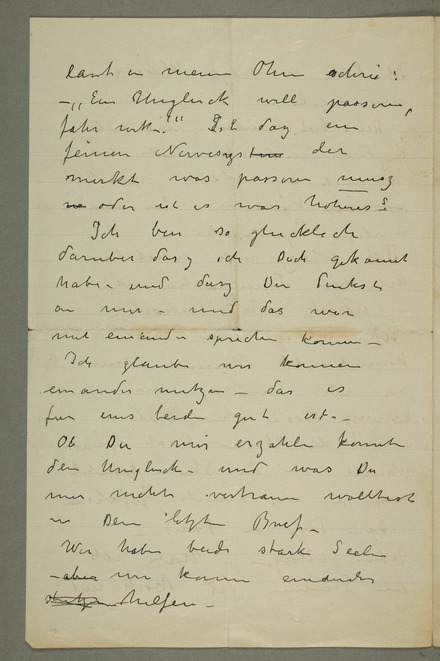 laut in meinen Ohren schrie:
– „Ein Unglück will passieren,
fahr weg.!" Ist das ein
feines Nervesystem der
merkt was passieren musz
oder ist es was höheres?
Ich bin so glücklich
darüber dasz ich Dich gekannt
habe – und dasz Du denkst
an mir – und das wir
mit einander sprechen können –
Ich glaube wir können
einander nutzen – das es
für uns beiden gut ist –
Ob Du mir erzählen konnte
den Unglück – und was Du
mir nicht vertrauen wolltest
in Dein letzten Brief –
Wir haben beide starke Seelen
– aber wir können einander
helfen –